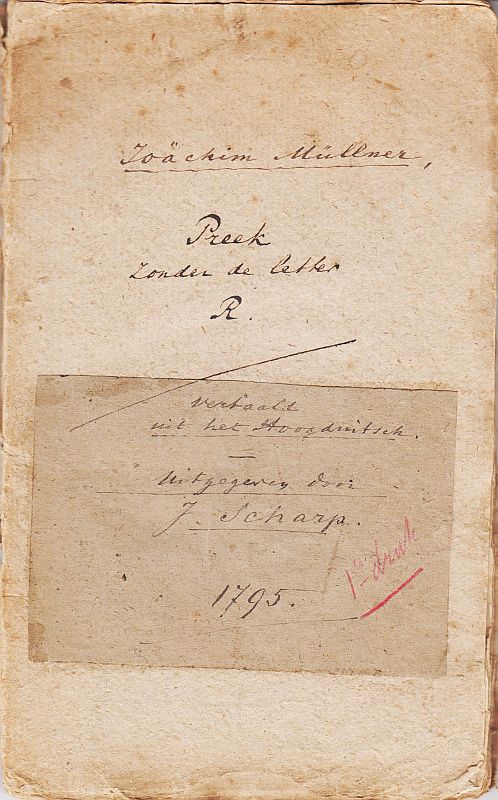 Joächim Müllner,
Preek
zonder de letter
R.
vertaald
uit het Hoogduitsch.
—
Uitgegeven door
J. Scharp.
1795.
1e druk